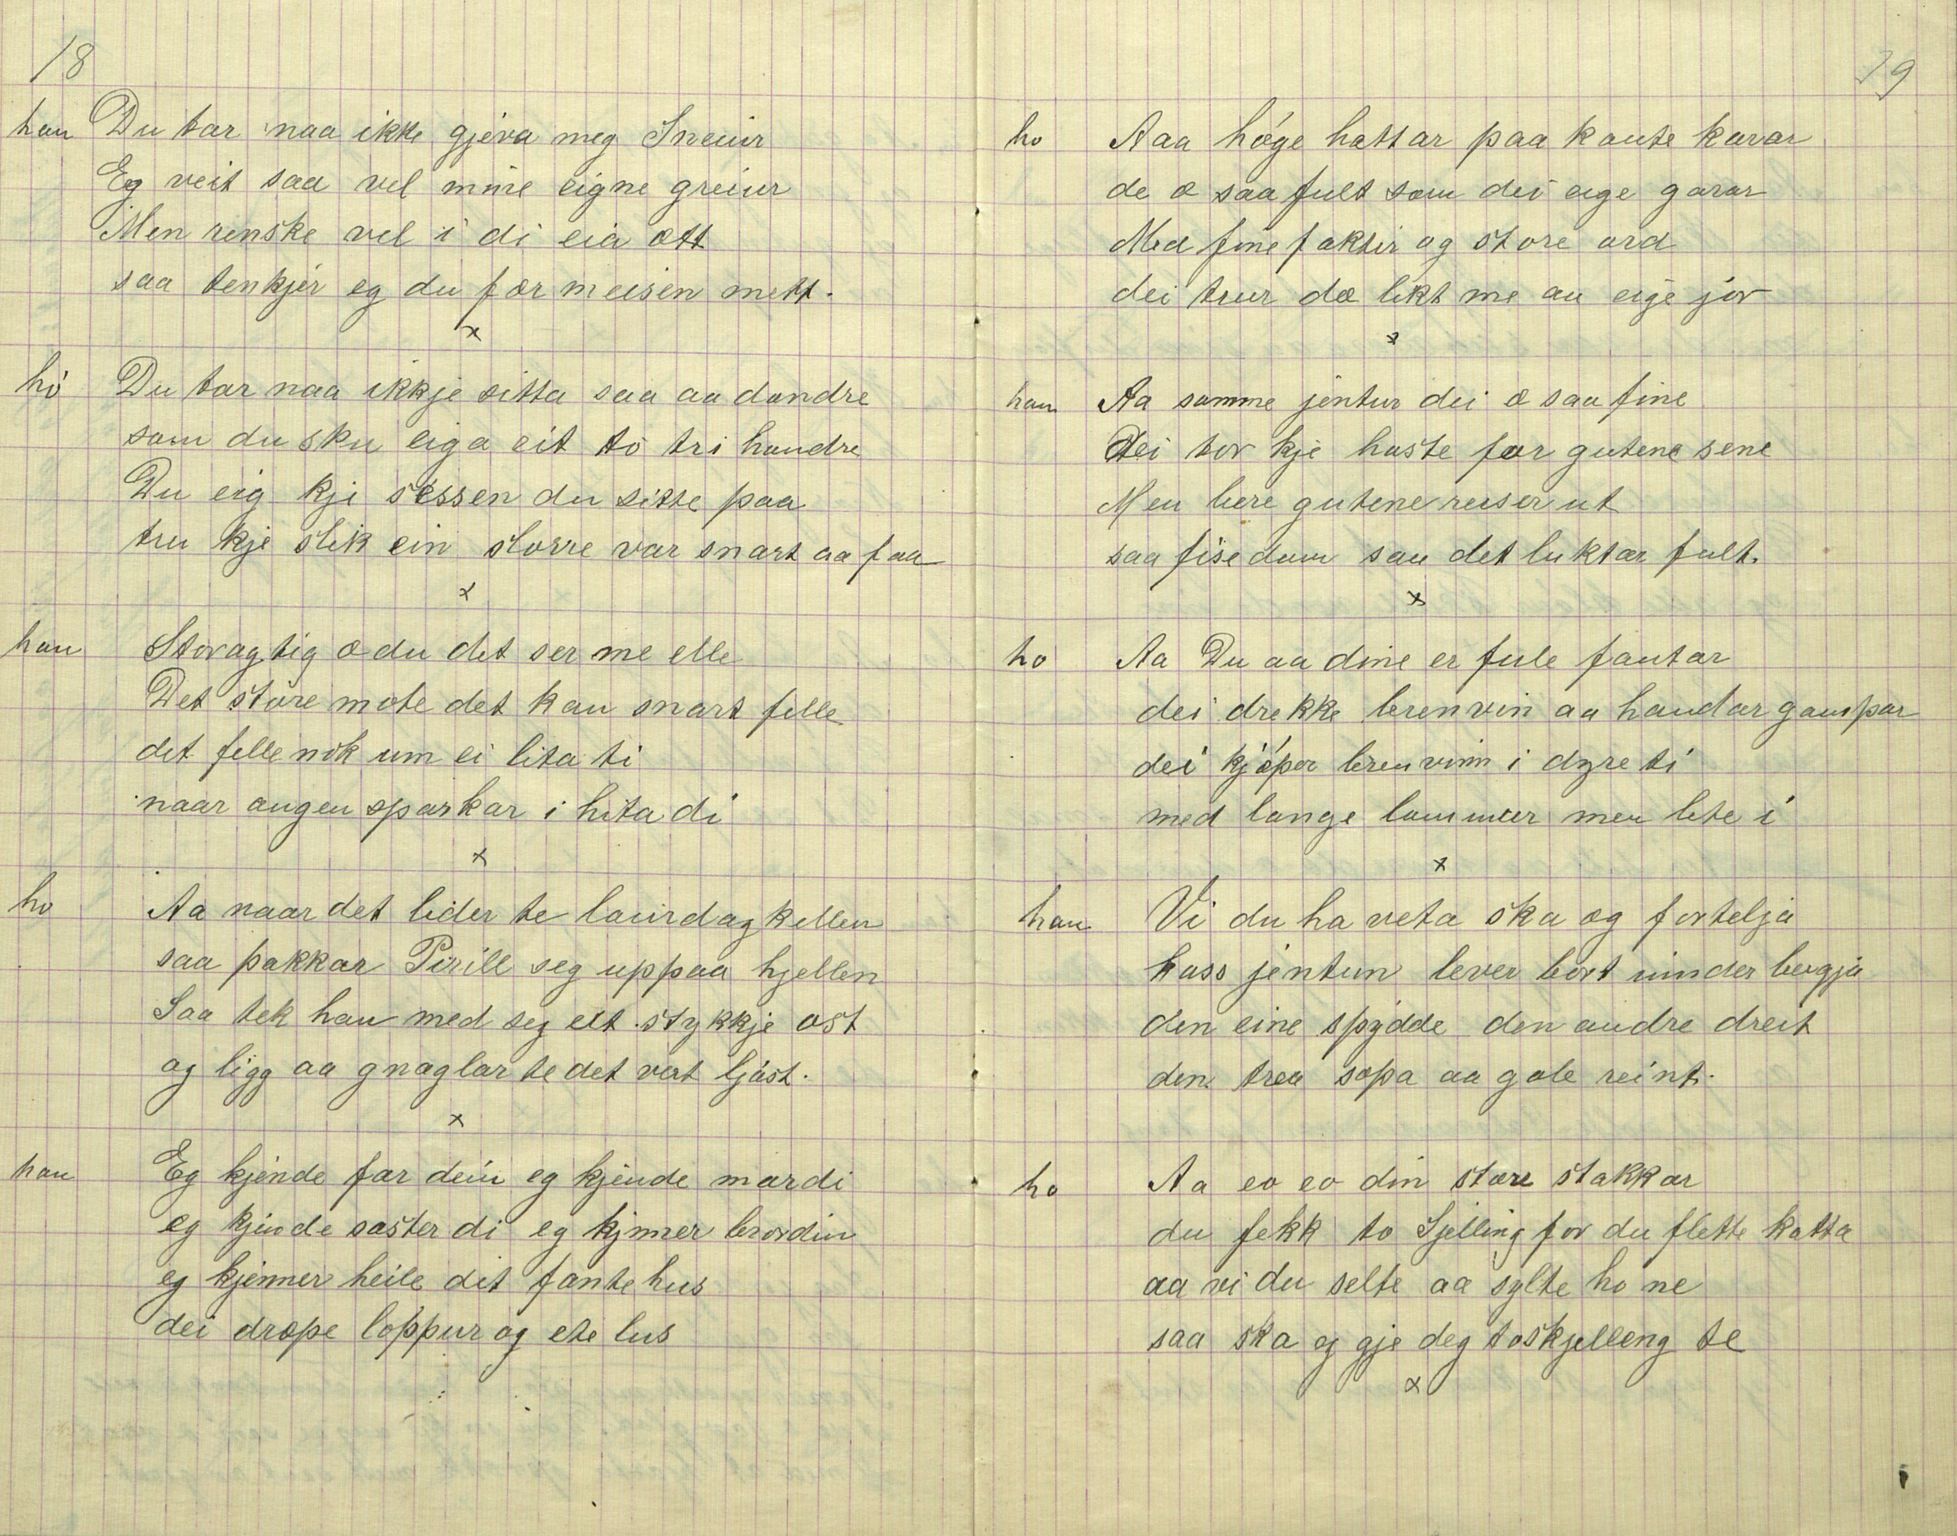 18
han Du tar naa ikke gjeva meg Sneiur
Eg veit saa vel mine eigne greiur
Men renske vel i di eia ætt
saa tenkjer eg du fær meisen mett.
x
ho Du tar naa ikkje sitta saa aa dondre
som du sku eiga eit to tri hondre
Du eig kji sessen du sitte paa
tru kje slik ein storre var snart aa faa
x
han Storagtig æ du det ser me elle
Det store mote det kan snart felle
det felle nok um ei lita ti
naar ongen sparkar i hita di
x
ho Aa naar det lider te laurdagkellen
saa pakkar Pirill seg uppaa hjellen
Saa tek han med seg eit stykkje ost
og ligg aa gnaglar te det vert ljost.
x
han Eg kjende far dein eg kjende mor di
eg kjende soster di eg kjenner bror din
eg kjenner heile dit fantehus
dei dræpe loppur og ete lus
19
ho Aaa høge hattar paa kaute karar
de æ saa fult som dei eige garar
Med fine fakter og store ord
dei trur dæ likt me an eige jor
x
han Aa somme jentur dei æ saa fine
Dei tor kje hoste for gutene sine
Men bere gutene reiser ut
saa fise dom saa det luktar fult.
x
ho Aa Du aa dine er fule fantar
dei drekke brenvin aa handar gampar
dei kjøper brenvinn i dyre ti
med lange lommuer men lite i
x
han Vi du ha veta ska eg fortelja
hass jentun lever bort under bergja
den eine spydde den andre dreit
den trea sopa aa gole reint.
ho Aa eo eo din store stakkar
du fekk to Sjelling for du flette katta
aa vi du selte aa sylte ho ne
saa ska eg gje deg toskjelleng te
x